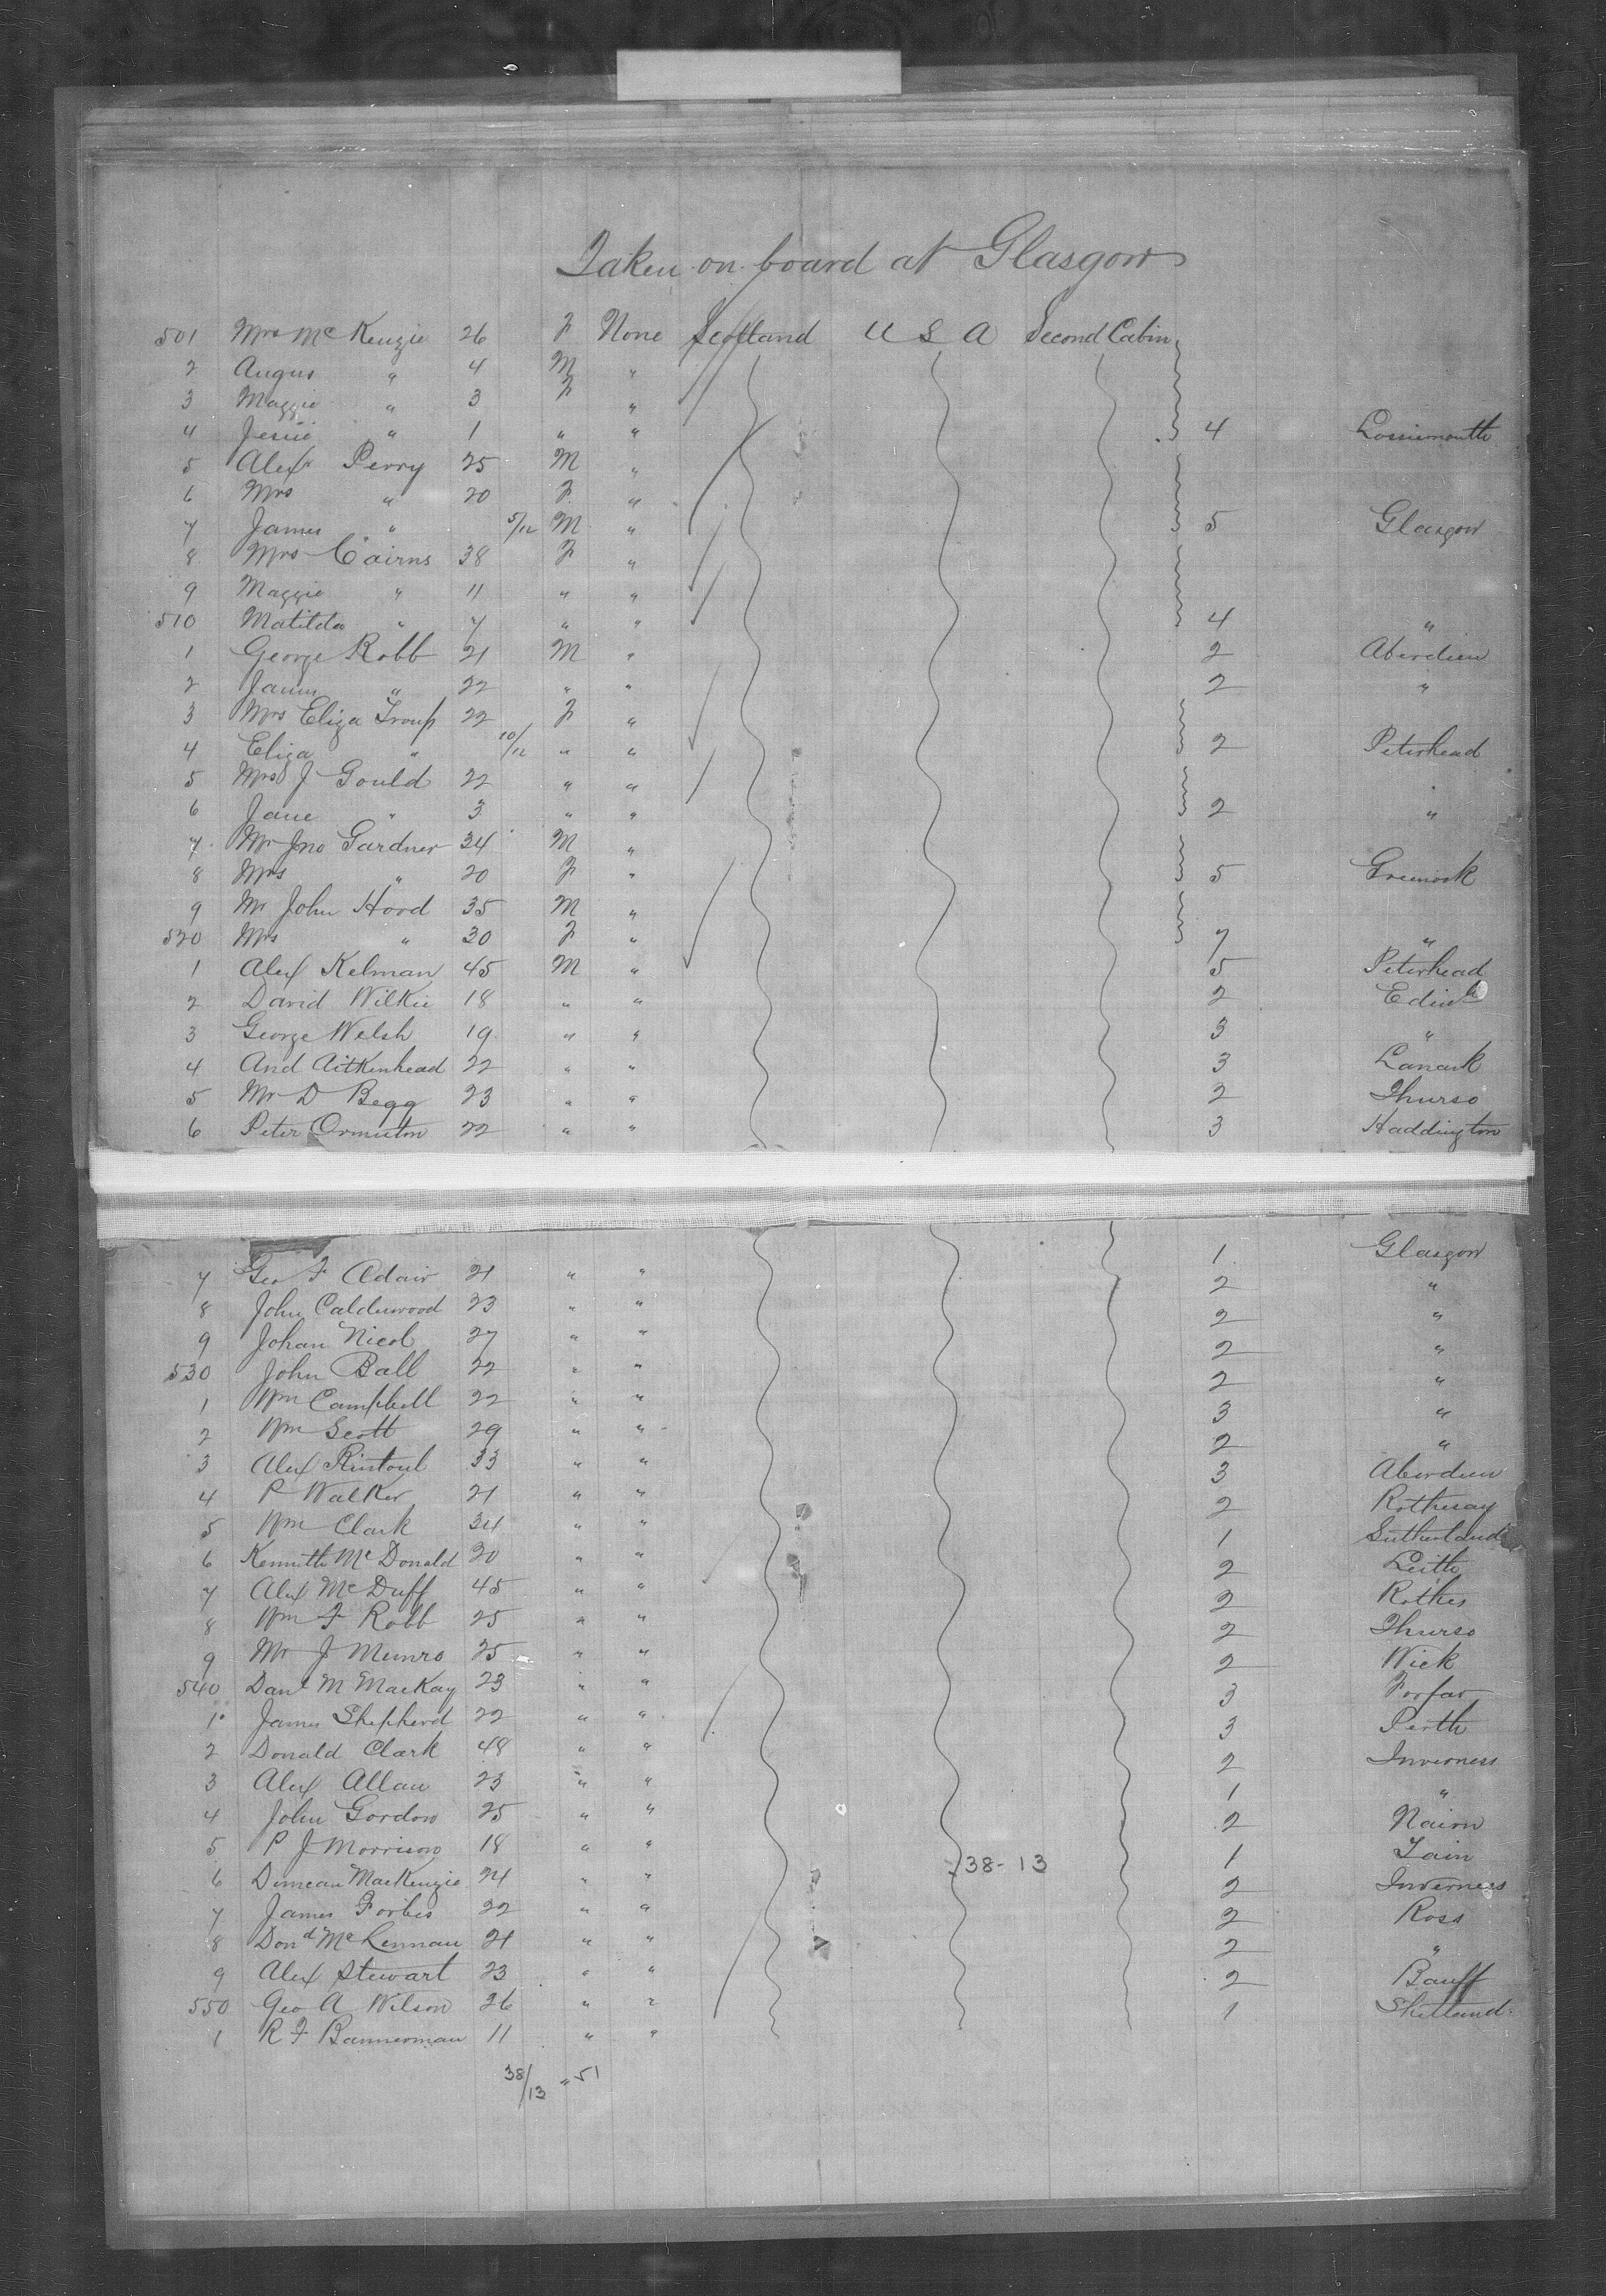 Taken on board at Glasgow
501 Mrs McKenzie 26 F None Scotland U S A Second Cabin
2 Angus " 4 M "
3 Maggie " 3 F "
4 Jessie " 1 " " 4 Lossiemouth
5 Alexr Perry 25 M "
6 Mrs " 20 F "
7 James " 5/12 M " 5 Glasgow
8 Mrs Cairns 38 F "
9 Maggie " 11 " "
510 Matilda " 7 " " 4 "
1 George Robb 21 M " 2 Aberdeen
2 James " 22 " " 2 "
3 Mrs Eliza Troup 22 F "
4 Eliza " 10/12 " " 2 Peterhead
5 Mrs J Gould 22 " "
6 Jane " 3 " " 2 "
7 Mr Jno Gardner 34 M "
8 Mrs " 20 F " 5 Greenock
9 Mr John Hood 35 M "
520 Mrs " 30 F " 7 "
1 Alex Kelman 45 M " 5 Peterhead
2 David Wilkie 18 " " 2 Edinh
3 George Welsh 19 " " 3 "
4 And Aitkenhead 22 " " 3 Lanark
5 Mr D Begg 23 " " 2 Thurso
6 Peter Ormiston 22 " " 3 Haddington
7 Geo F Adair 21 " " 1 Glasgow
8 John Calderwood 23 " " 2 "
9 Johan Nicol 27 " " 2 "
530 John Ball 22 " " 2 "
1 Wm Campbell 22 " " 2 "
2 Wm Scott 29 " " 3 "
3 Alex Rintoul 33 " " 2 "
4 P Walker 21 " " 3 Aberdeen
5 Wm Clark 34 " " 2 Rothesay
6 Kenneth McDonald 20 " " 1 Sutherland
7 Alex McDuff 45 " " 2 Leith
8 Wm F Robb 25 " " 2 Rothes
9 Mr J Munro 25 " " 2 Thurso
540 Danl M MacKay 23 " " 2 Wick
1 James Shepherd 22 " " 3 Forfar
2 Donald Clark 48 " " 3 Perth
3 Alex Allan 23 " " 2 Inverness
4 John Gordon 25 " " 1 "
5 P J Morrison 18 " " 2 Nairn
6 Duncan MacKenzie 24 " " 38-13 1 Tain
7 James Forbes 22 " " 2 Inverness
8 Dond McLennan 21 " " 2 Ross
9 Alex Stewart 23 " " 2 "
550 Geo A Wilson 26 " " 2 Banff
1 R F Bannerman 11 " " 1 Shetland
38/13 = 51